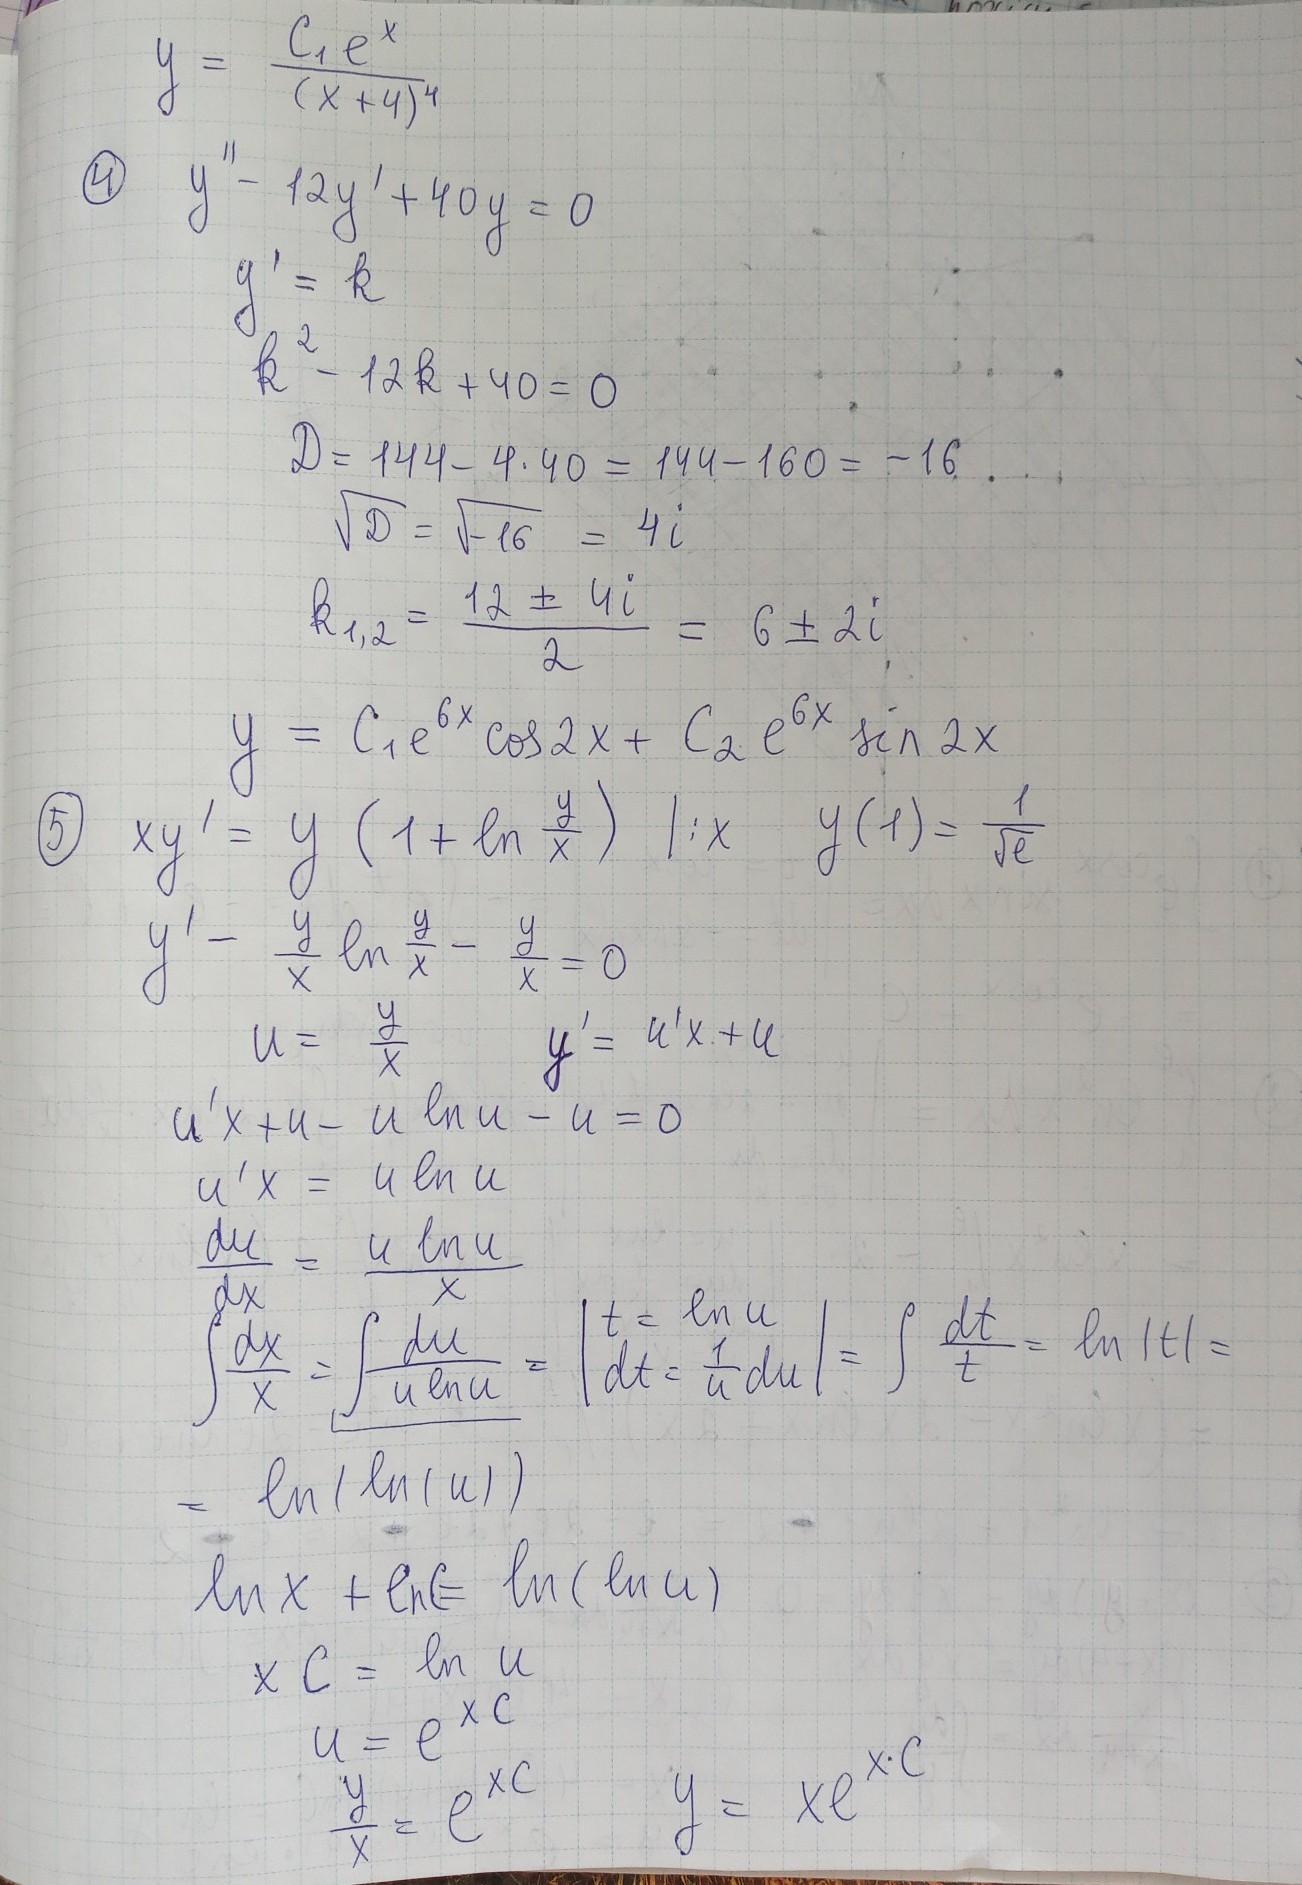 y = C₁eˣ / (x+4)⁴
④ y'' - 12y' + 40y = 0
y' = k
k² - 12k + 40 = 0
D = 144 - 4·40 = 144 - 160 = -16
√D = √-16 = 4i
k₁,₂ = (12 ± 4i) / 2 = 6 ± 2i
y = C₁e⁶ˣ cos2x + C₂ e⁶ˣ sin 2x
⑤ xy' = y (1 + ln y/x) |:x y(1) = 1/√e
y' - y/x ln y/x - y/x = 0
u = y/x y' = u'x + u
u'x + u - u ln u - u = 0
u'x = u ln u
du/dx = u ln u / x
∫ dx/x = ∫ du / (u ln u) = | t = ln u dt = 1/u du | = ∫ dt/t = ln |t| =
= ln(ln(u))
ln x + ln C = ln(ln u)
x C = ln u
u = e^{xC}
y/x = e^{xC} y = xe^{x·C}